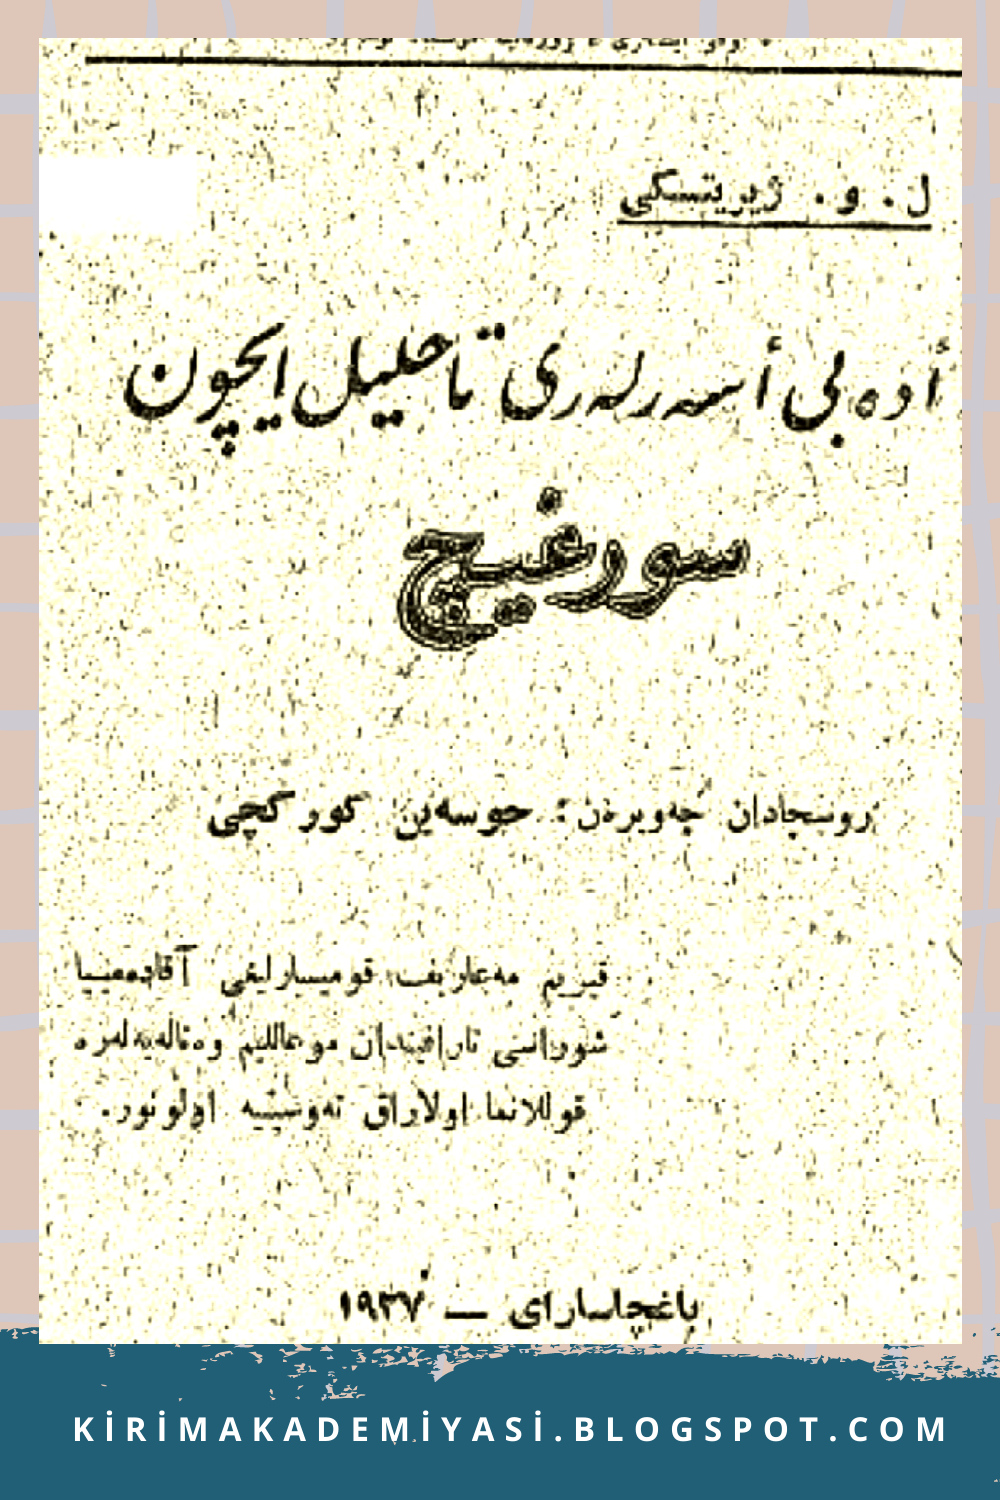 ل. و. ژیریتسكی
أده بی أسه رله ری تاحلیل ایچون
سورغیچ
روسچادان چه‌ویره‌ن: حوسه‌ین كوركچی
قیریم مه‌عاریف قومیسارلیغی آقاده‌میییا
شوراسی تارافیندان موعاللیم وه تاله‌به‌له‌ره
قوللانما اولاراق ته‌وسییه اولونور.
باغچاسارای — ١٩٢٧
KİRİMAKADEMİYASİ.BLOGSPOT.COM